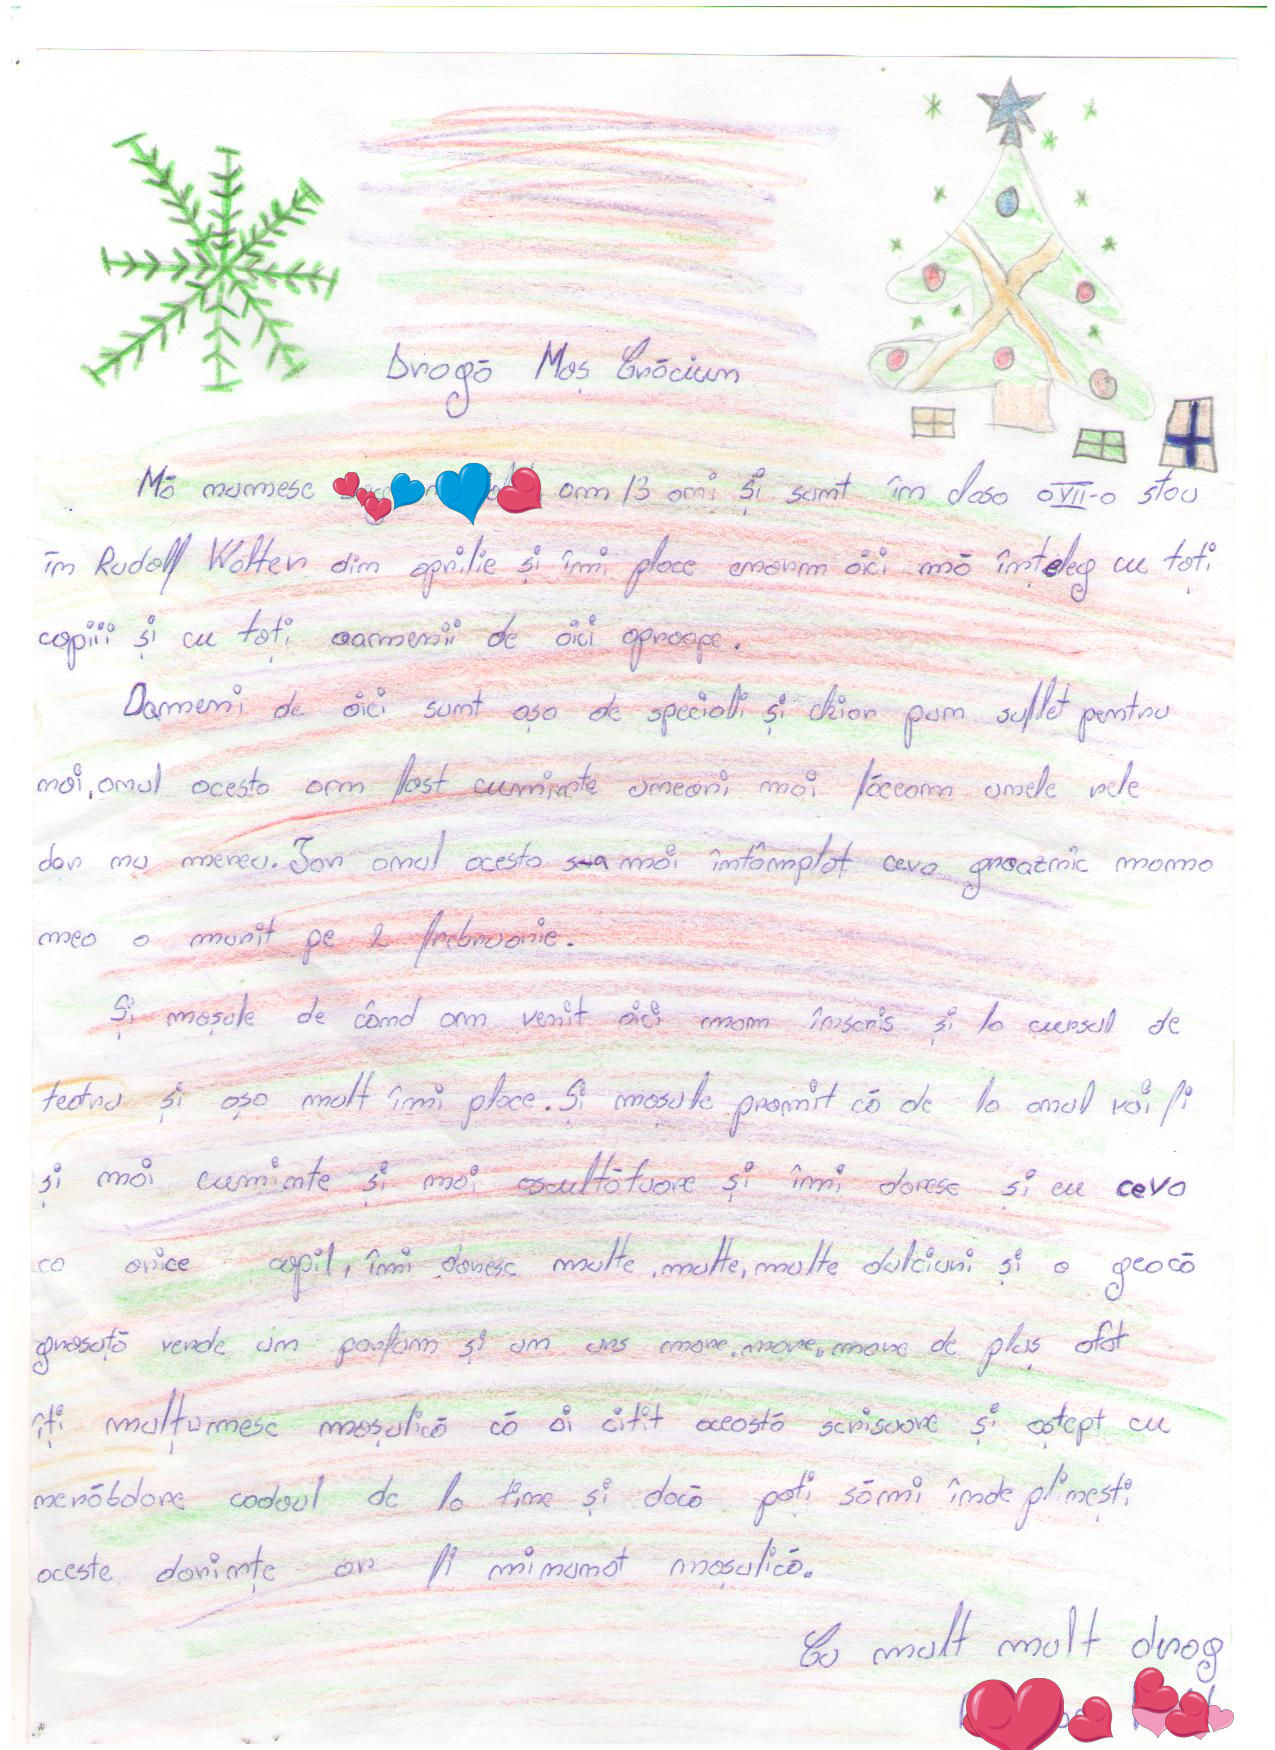 Dragă Moș Crăciun
Mă numesc am 13 ani și sunt în clasa aVII-a stau
în Rudolf Walter din aprilie și îmi place enorm aici mă înțeleg cu toți
copiii și cu toți oamenii de aici aproape.
Oameni de aici sunt așa de speciali și chiar pun suflet pentru
noi, anul acesta am fost cuminte uneori mai făceam unele rele
dar nu mereu. Iar anul acesta sua mai întâmplat ceva groaznic mama
mea a murit pe 2 frebruarie.
Și moșule de când am venit aici mam înscris și la cursul de
teatru și așa mult îmi place. Și moșule promit că de la anul voi fi
și mai cuminte și mai ascultătoare și îmi doresc și eu ceva
ca orice copil, îmi doresc multe, multe, multe dulciuni și o geacă
grosuță verde un parfum și un urs mare, mare, mare de pluș atât
îți mulțumesc moșulică că ai citit această scrisoare și aștept cu
nerăbdare cadoul de la tine și dacă poți sămi îndeplinești
aceste dorințe ar fi minunat moșulică.
Cu mult mult drag